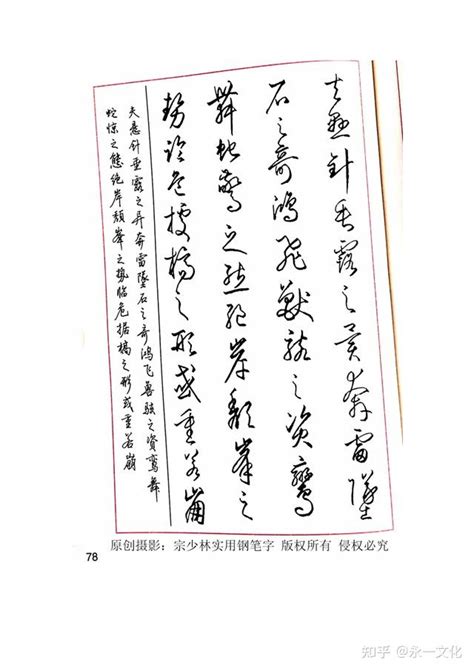 夫悬针垂露之异奔雷墜
石之奇鸿飛獸骇之资鸞
舞蛇驚之態绝岸颓峯之
势临危据槁之形或重若崩
夫悬针垂露之异奔雷墜石之奇鸿飞兽骇之资鸾舞
蛇惊之態绝岸颓峯之势临危据槁之形或重若崩
78
原创摄影：宗少林实用钢笔字 版权所有 侵权必究
知乎 @永一文化